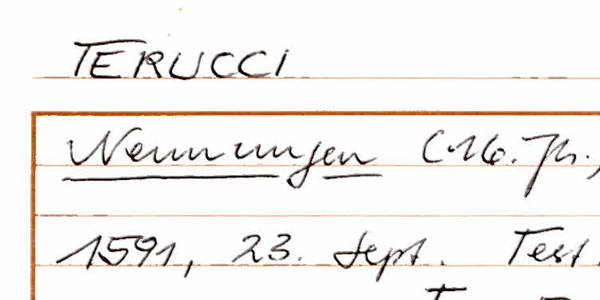 TERUCCI
Nennungen (16. Jh.,
1591, 23. Sept. Test.